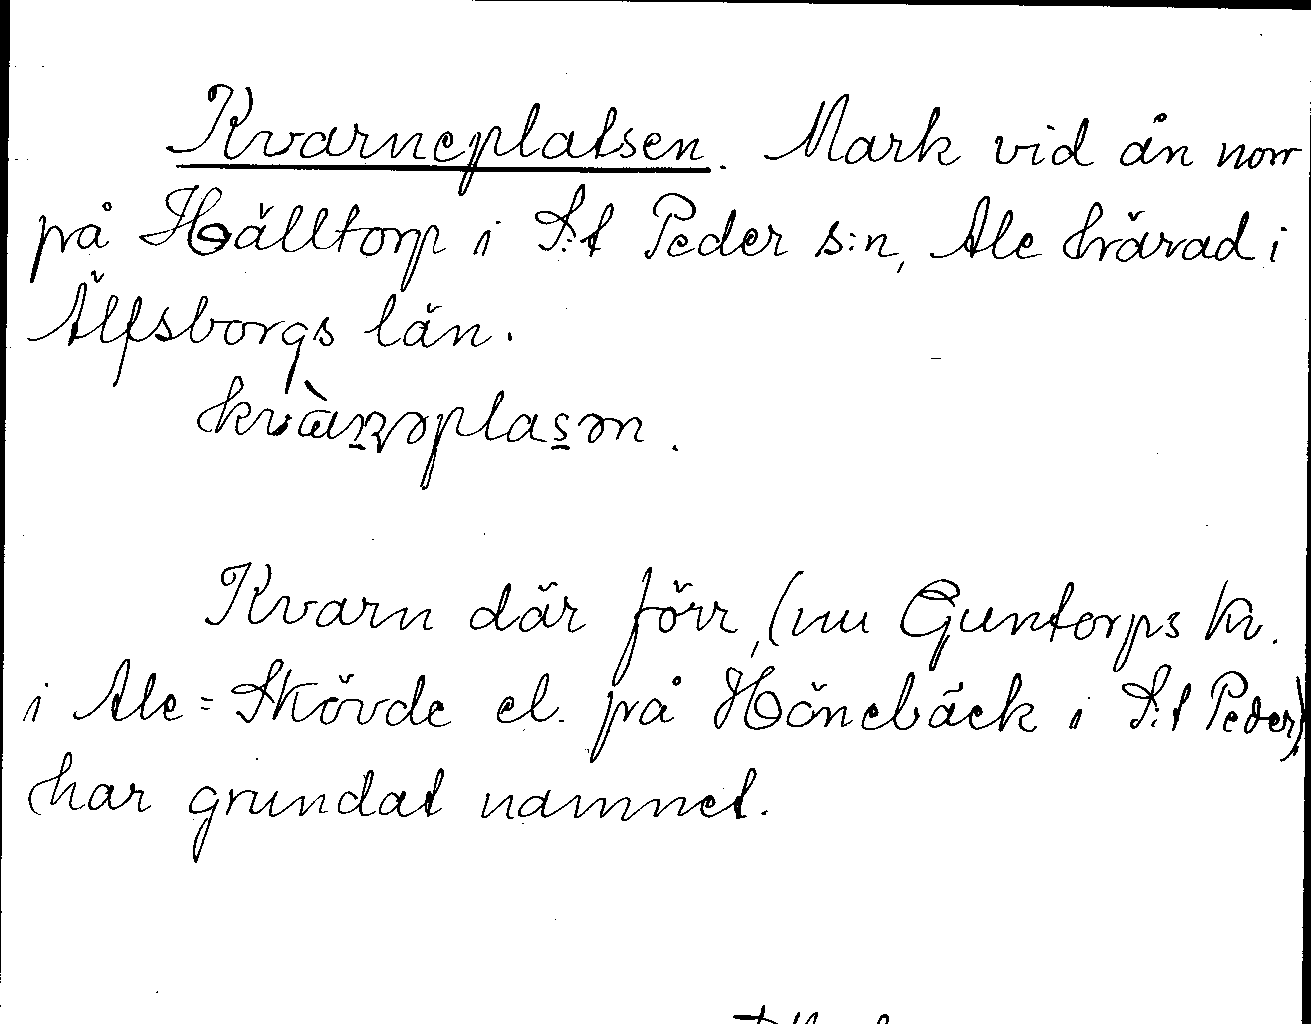 Kvarneplatsen. Mark vid ån norr
på Hälltorp i S:t Peder s:n, Ale härad i
Älfsborgs län.
Kvarn där förr, (nu Guntorps kv.
i Ale=Skövde el. på Hönebäck i S:t Peder),
har grundat namnet.